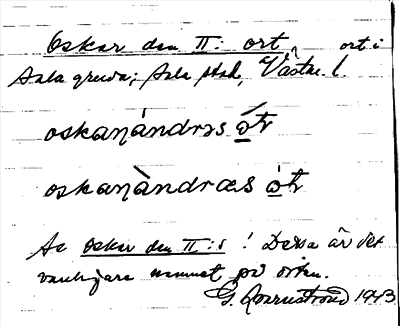 Oskar den II: ort, ort i
Sala gruva; Sala stad, Västm. l.
oskaŋándrɔs ɷ̣́t̄r
oskaŋàndræs ɷ̣́t̄r
Av Oskar den II:s! Dessa är det
vanligare namnet på orten.
G. Qvarnström 1943